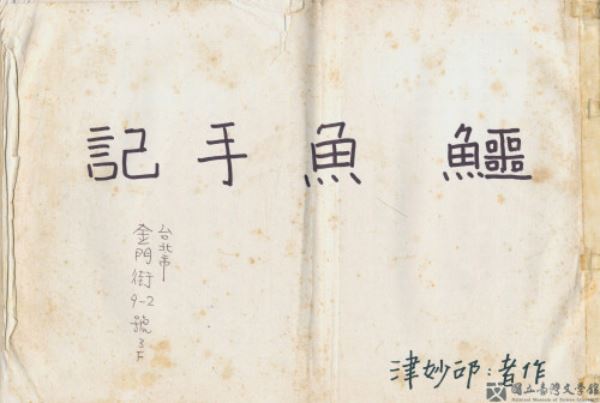 鱷魚手記
台北市
金門街9-2號3F
作者:邱妙津
國立臺灣文學館
National Museum of Taiwan Literature